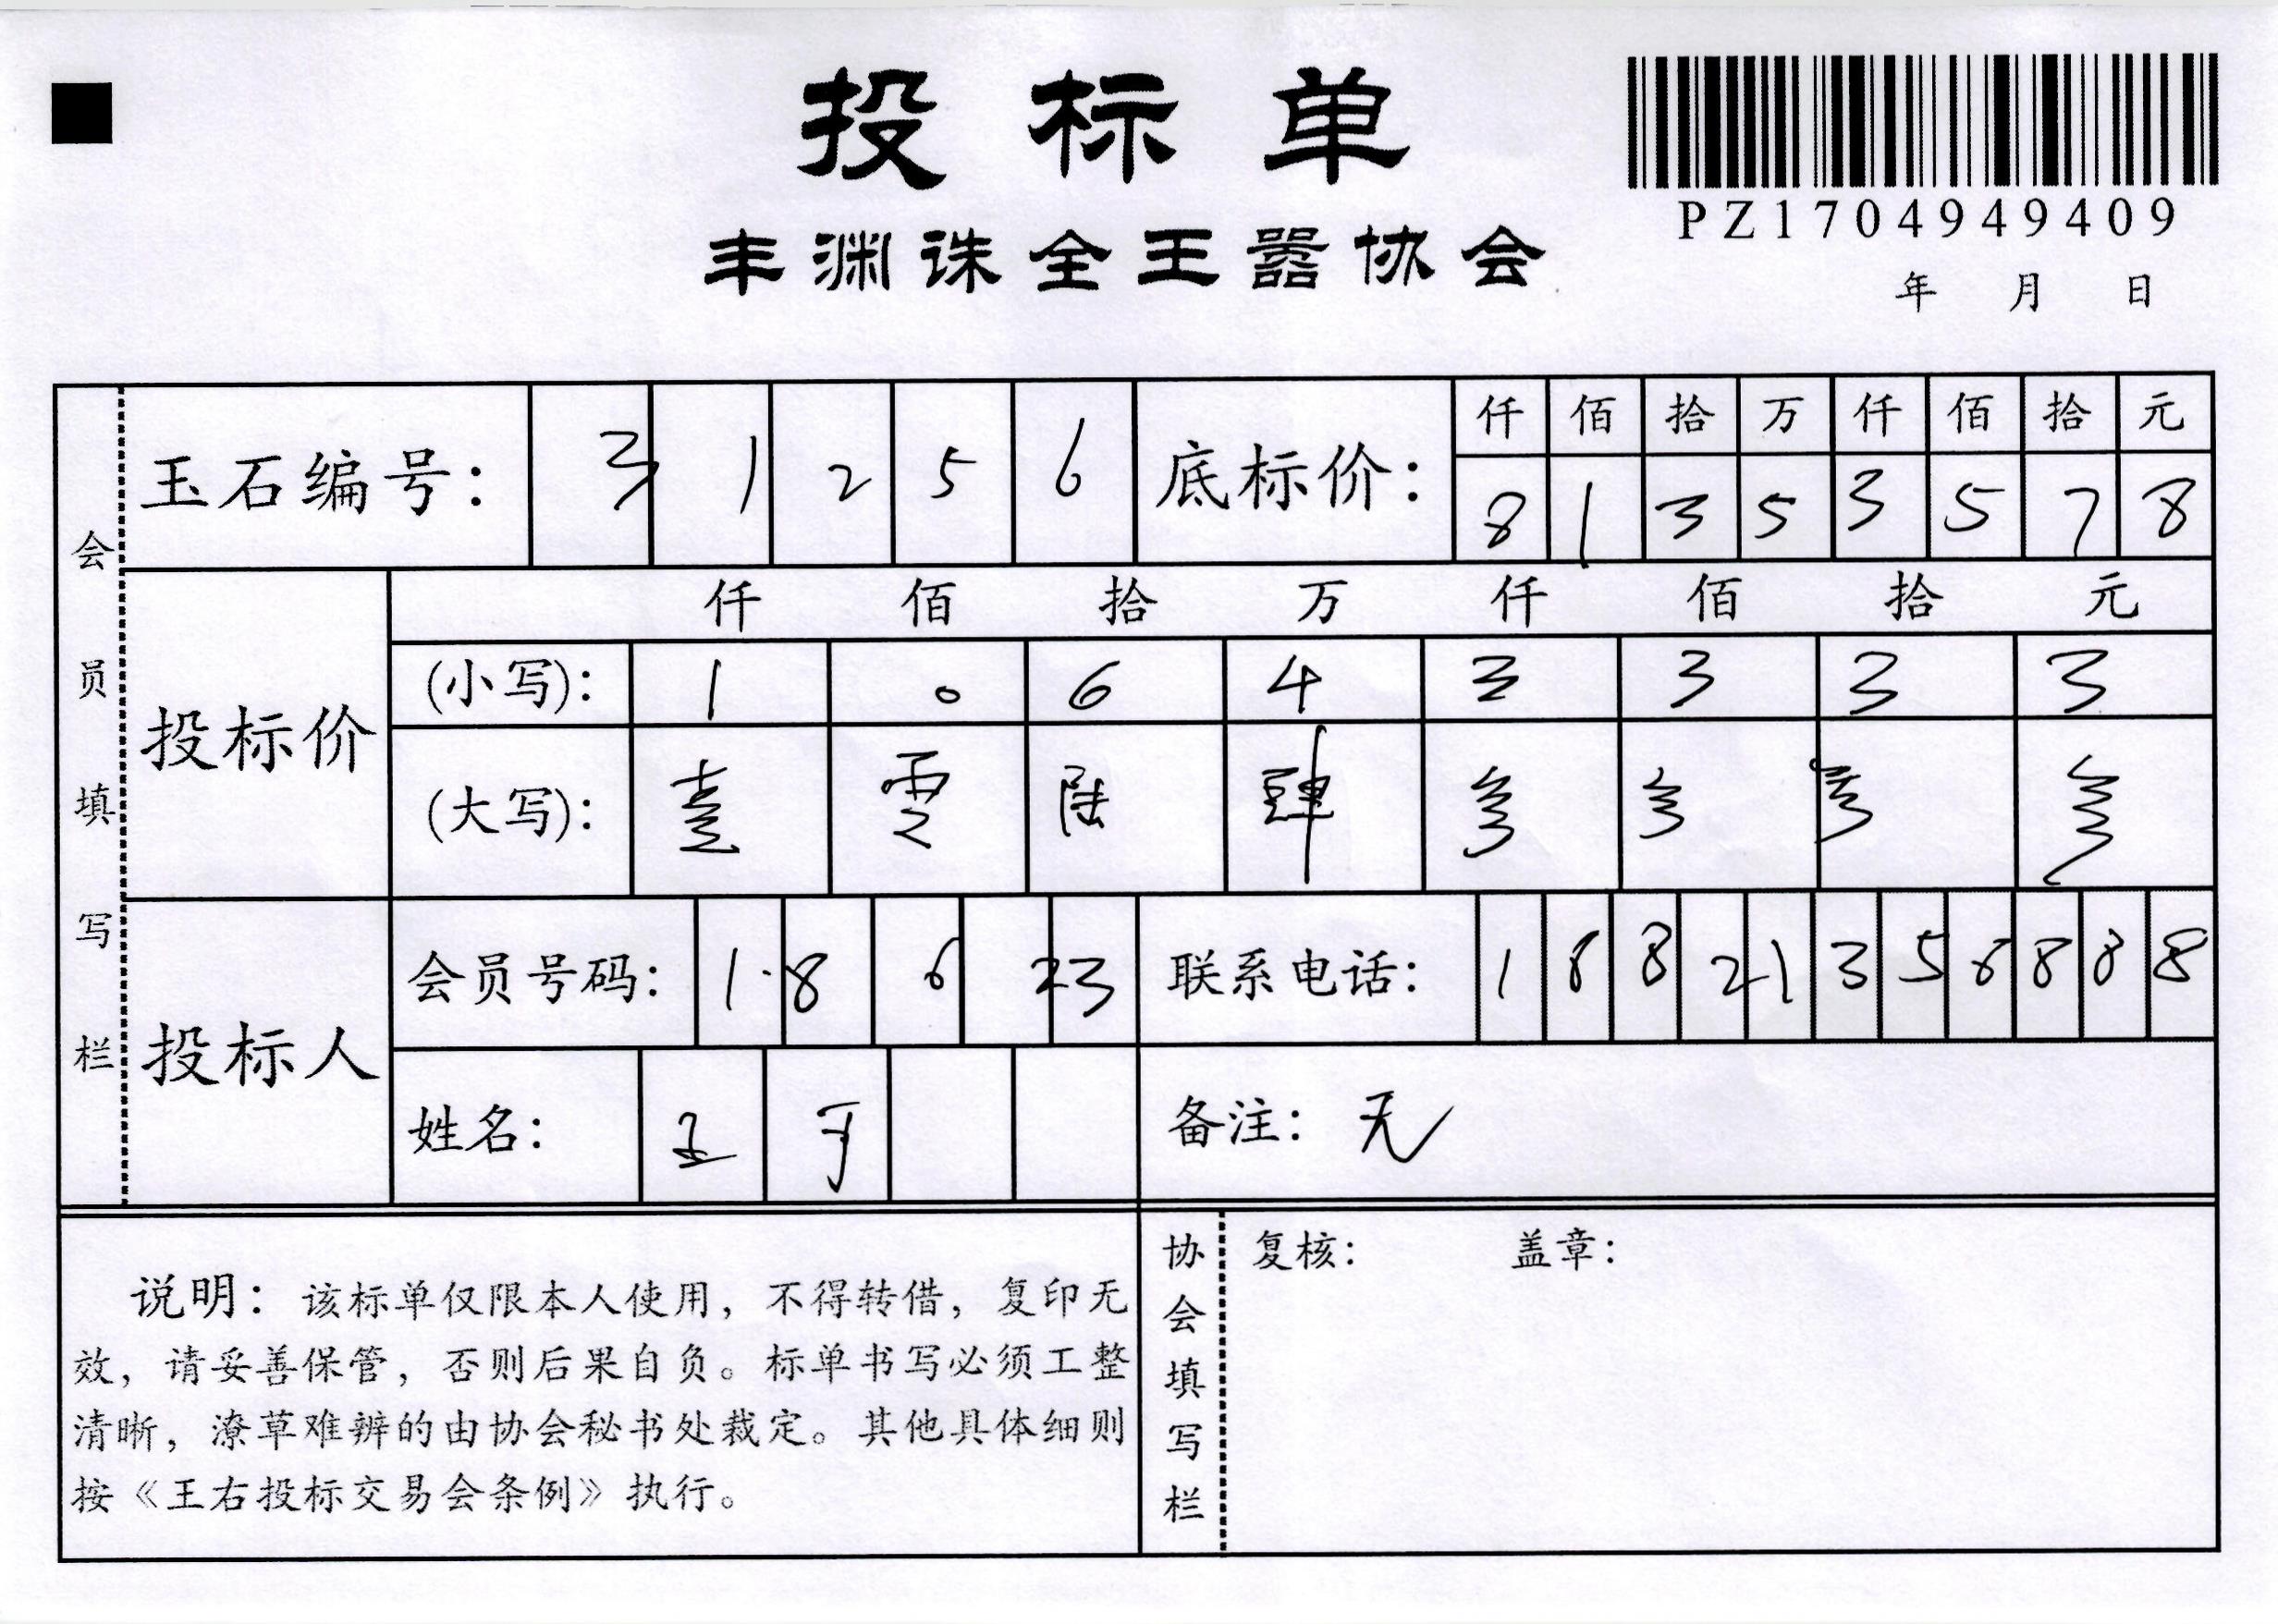 投标单
丰渊诛全王嚣协会
PZ1704949409
年 月 日
会员填写栏
玉石编号： 3 1 2 5 6
底标价： 仟 佰 拾 万 仟 佰 拾 元
8 1 3 5 3 5 7 8
投标价
仟 佰 拾 万 仟 佰 拾 元
(小写)： 1 0 6 4 3 3 3 3
(大写)： 壹 零 陆 肆 叁 叁 叁 叁
投标人
会员号码： 1 8 6 2 3
联系电话： 1 8 8 2 1 3 5 8 8 8 8
姓名： 王
备注： 无
说明：该标单仅限本人使用，不得转借，复印无
效，请妥善保管，否则后果自负。标单书写必须工整
清晰，潦草难辨的由协会秘书处裁定。其他具体细则
按《王右投标交易会条例》执行。
协会填写栏
复核： 盖章：